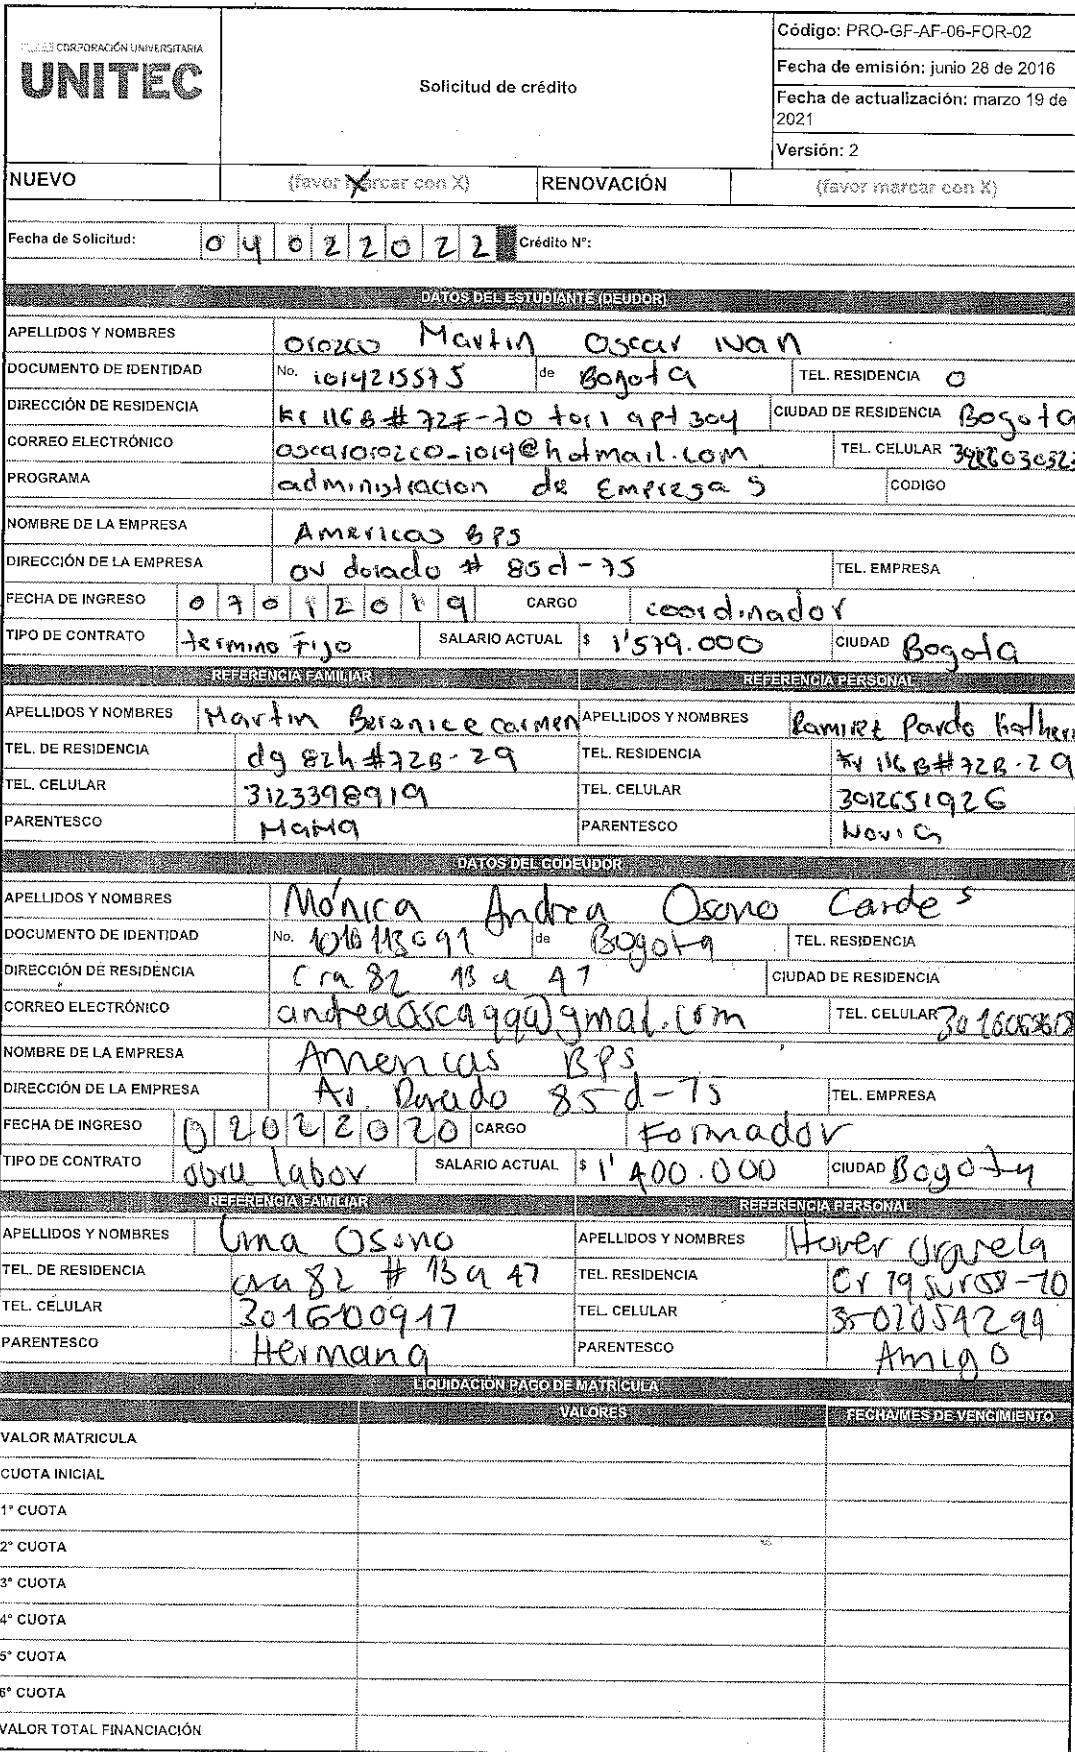 CORPORACIÓN UNIVERSITARIA
UNITEC
Solicitud de crédito
Código: PRO-GF-AF-06-FOR-02
Fecha de emisión: junio 28 de 2016
Fecha de actualización: marzo 19 de
2021
Versión: 2
NUEVO (favor marcar con X) X RENOVACIÓN (favor marcar con X)
Fecha de Solicitud: 0 4 0 2 2 0 2 2 Crédito N°:
DATOS DEL ESTUDIANTE (DEUDOR)
APELLIDOS Y NOMBRES orozco Martin Oscar ivan
DOCUMENTO DE IDENTIDAD No. 1014215575 de Bogota TEL. RESIDENCIA 0
DIRECCIÓN DE RESIDENCIA kr 116B # 72F-70 tor 1 apt 304 CIUDAD DE RESIDENCIA Bogota
CORREO ELECTRÓNICO oscarorozco_1014@hotmail.com TEL. CELULAR
PROGRAMA administracion de Empresas CODIGO
NOMBRE DE LA EMPRESA Americas BPS
DIRECCIÓN DE LA EMPRESA av dorado # 85d-75 TEL. EMPRESA
FECHA DE INGRESO 0 7 0 1 2 0 1 9 CARGO coordinador
TIPO DE CONTRATO termino Fijo SALARIO ACTUAL $ 1'579.000 CIUDAD Bogota
REFERENCIA FAMILIAR REFERENCIA PERSONAL
APELLIDOS Y NOMBRES Martin Beranice carmen APELLIDOS Y NOMBRES Ramirez Pardo Katheri
TEL. DE RESIDENCIA dg 82h #72B-29 TEL. RESIDENCIA kr 116B#72B-29
TEL. CELULAR 3123398919 TEL. CELULAR 3012651926
PARENTESCO Mama PARENTESCO Novia
DATOS DEL CODEUDOR
APELLIDOS Y NOMBRES Mónica Andrea Osorio Cardes
DOCUMENTO DE IDENTIDAD No. 1016113691 de Bogota TEL. RESIDENCIA
DIRECCIÓN DE RESIDENCIA Cra 82 13 a 47 CIUDAD DE RESIDENCIA
CORREO ELECTRÓNICO TEL. CELULAR
NOMBRE DE LA EMPRESA Americas BPS
DIRECCIÓN DE LA EMPRESA Av. Dorado 85d-75 TEL. EMPRESA
FECHA DE INGRESO 0 2 0 2 2 0 2 0 CARGO Formador
TIPO DE CONTRATO obra labor SALARIO ACTUAL $ 1'400.000 CIUDAD Bogota
REFERENCIA FAMILIAR REFERENCIA PERSONAL
APELLIDOS Y NOMBRES Osorio APELLIDOS Y NOMBRES
TEL. DE RESIDENCIA cra 82 # 13 a 47 TEL. RESIDENCIA
TEL. CELULAR 3016100917 TEL. CELULAR
PARENTESCO Hermana PARENTESCO Amigo
LIQUIDACIÓN PAGO DE MATRICULA
VALORES FECHA/MES DE VENCIMIENTO
VALOR MATRICULA
CUOTA INICIAL
1° CUOTA
2° CUOTA
3° CUOTA
4° CUOTA
5° CUOTA
6° CUOTA
VALOR TOTAL FINANCIACIÓN